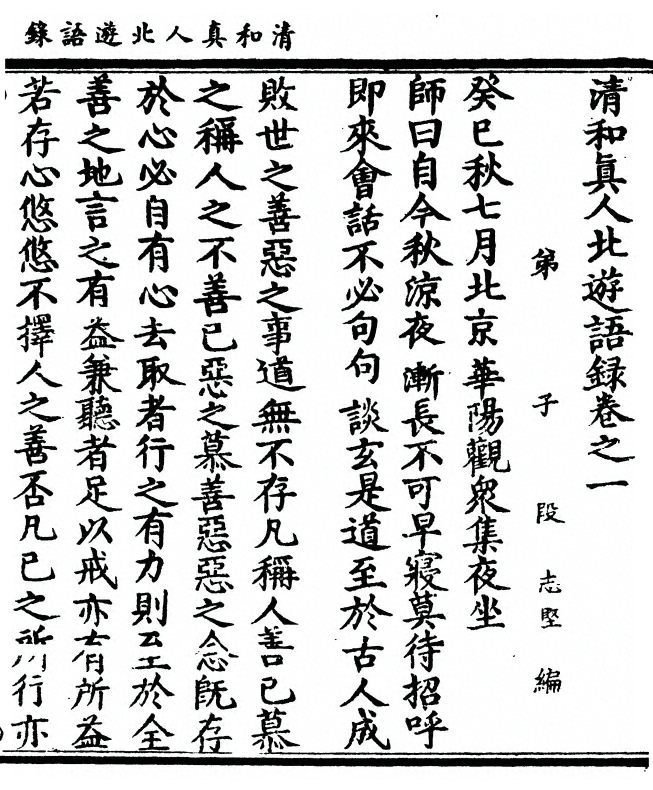 清和真人北遊語録
清和眞人北遊語録卷之一
弟子段志堅編
癸巳秋七月北京華陽觀衆集夜坐
師曰自今秋涼夜漸長不可早寢莫待招呼
即來會話不必句句談玄是道至於古人成
敗世之善惡之事道無不存凡稱人善已慕
之稱人之不善已惡之慕善惡惡之念旣存
於心必自有心去取者行之有力則至於全
善之地言之有益兼聽者足以戒亦有所益
若存心悠悠不擇人之善否凡已之所行亦